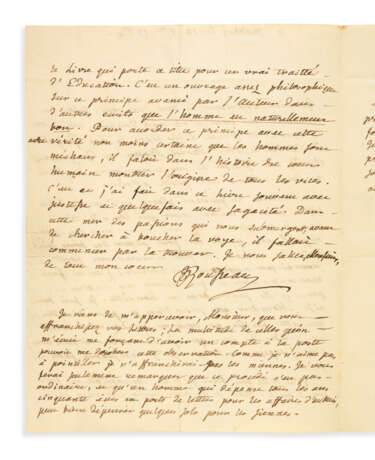 le livre qui porte ce titre pour un vrai traitté
d'Education. C'est un ouvrage assez philosophique
sur ce principe avancé par l'Auteur dans
d'autres écrits que l'homme est naturellement
bon. Pour accorder ce principe avec cette
autre vérité non moins certaine que les hommes sont
méchans, il faloit dans l'histoire du coeur
humain montrer l'origine de tous les vices.
C'est ce que j'ai fait dans ce livre, souvent avec
justesse et quelquefois avec sagacité. Dans
cette mer des passions qui nous submerge, avant
de chercher à boucher la voye, il falloit
commencer par la trouver. Je vous salue, Monsieur,
de tout mon coeur.
JJRousseau
Je viens de m'appercevoir, Monsieur, que vous
affranchissez vos lettres; La multitude de celles qu'on
m'écrit me forçant d'avoir un compte à la poste
pouvoit me cette observation. Comme je n'aime pas
à pointiller je n'affranchirai pas les miennes. Je vous
ferai seulement remarquer que ce procédé n'est pas
ordinaire, et qu'un homme qui dépense tous les ans
cinquante écus en ports de lettres pour les affaires d'autrui,
peut bien dépenser quelques sols pour les siennes.